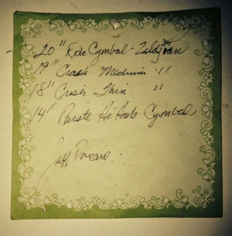 20" Ride Cymbal - Zildjian
19" Crash Medium "
18" Crash Thin "
14" Paiste Hi Hats Cymbals
Jeff Porcaro.